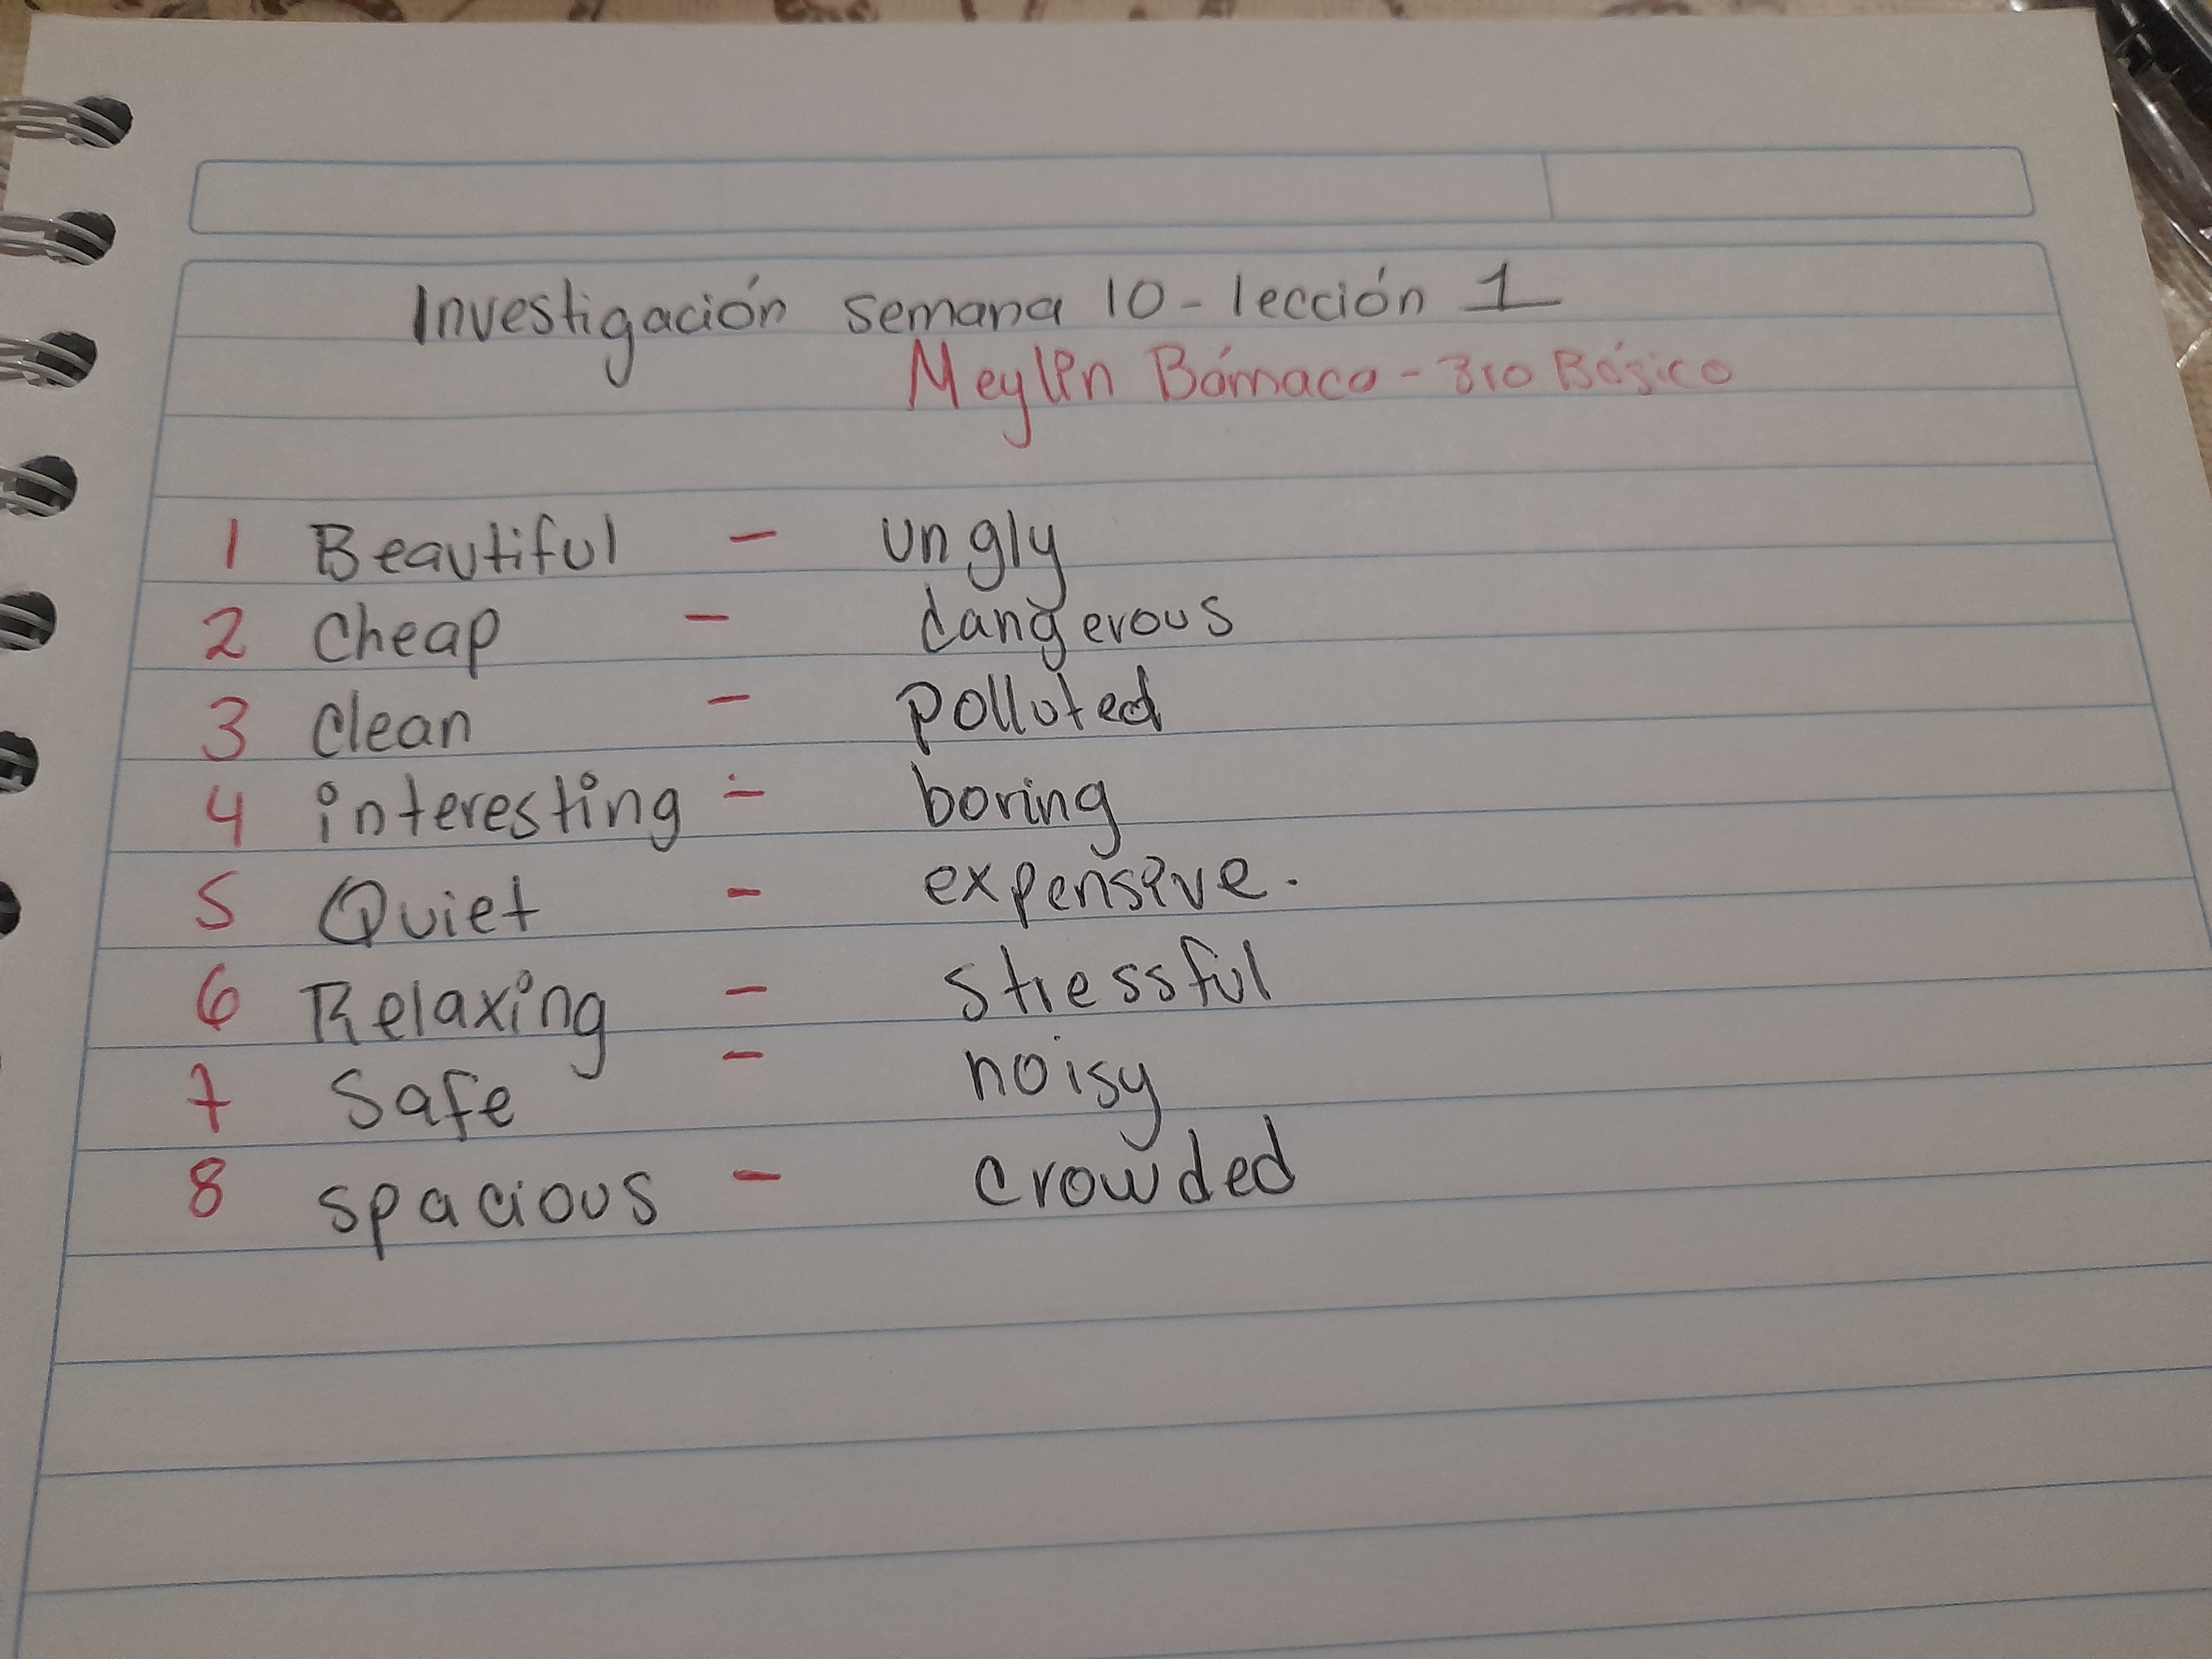 Investigación semana 10 - lección 1
Meylin Bámaca - 3ro Básico
1 Beautiful - ungly
2 Cheap - dangerous
3 Clean - polluted
4 interesting - boring
5 Quiet - expensive.
6 Relaxing - stressful
7 Safe - noisy
8 spacious - crowded